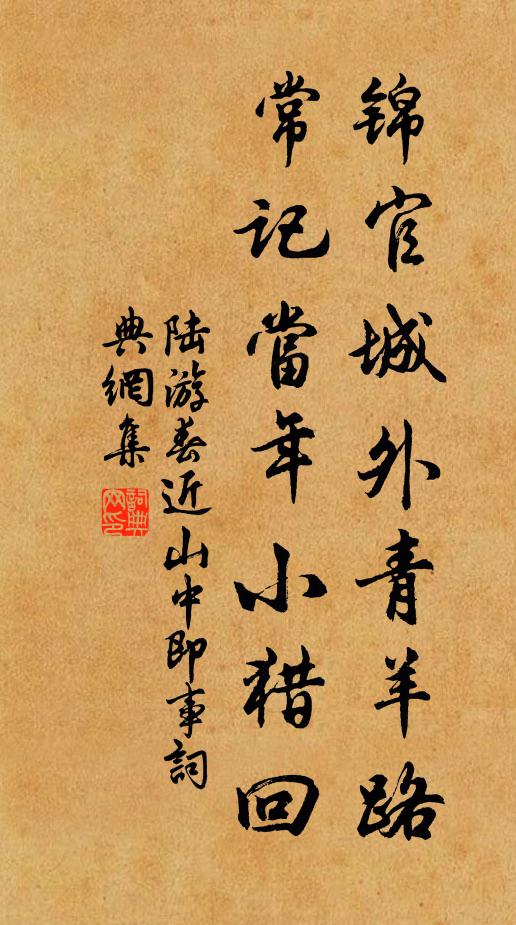 锦官城外青羊路
常记當年小猎回
陆游春近山中即事詞
典網集
詞典
网印